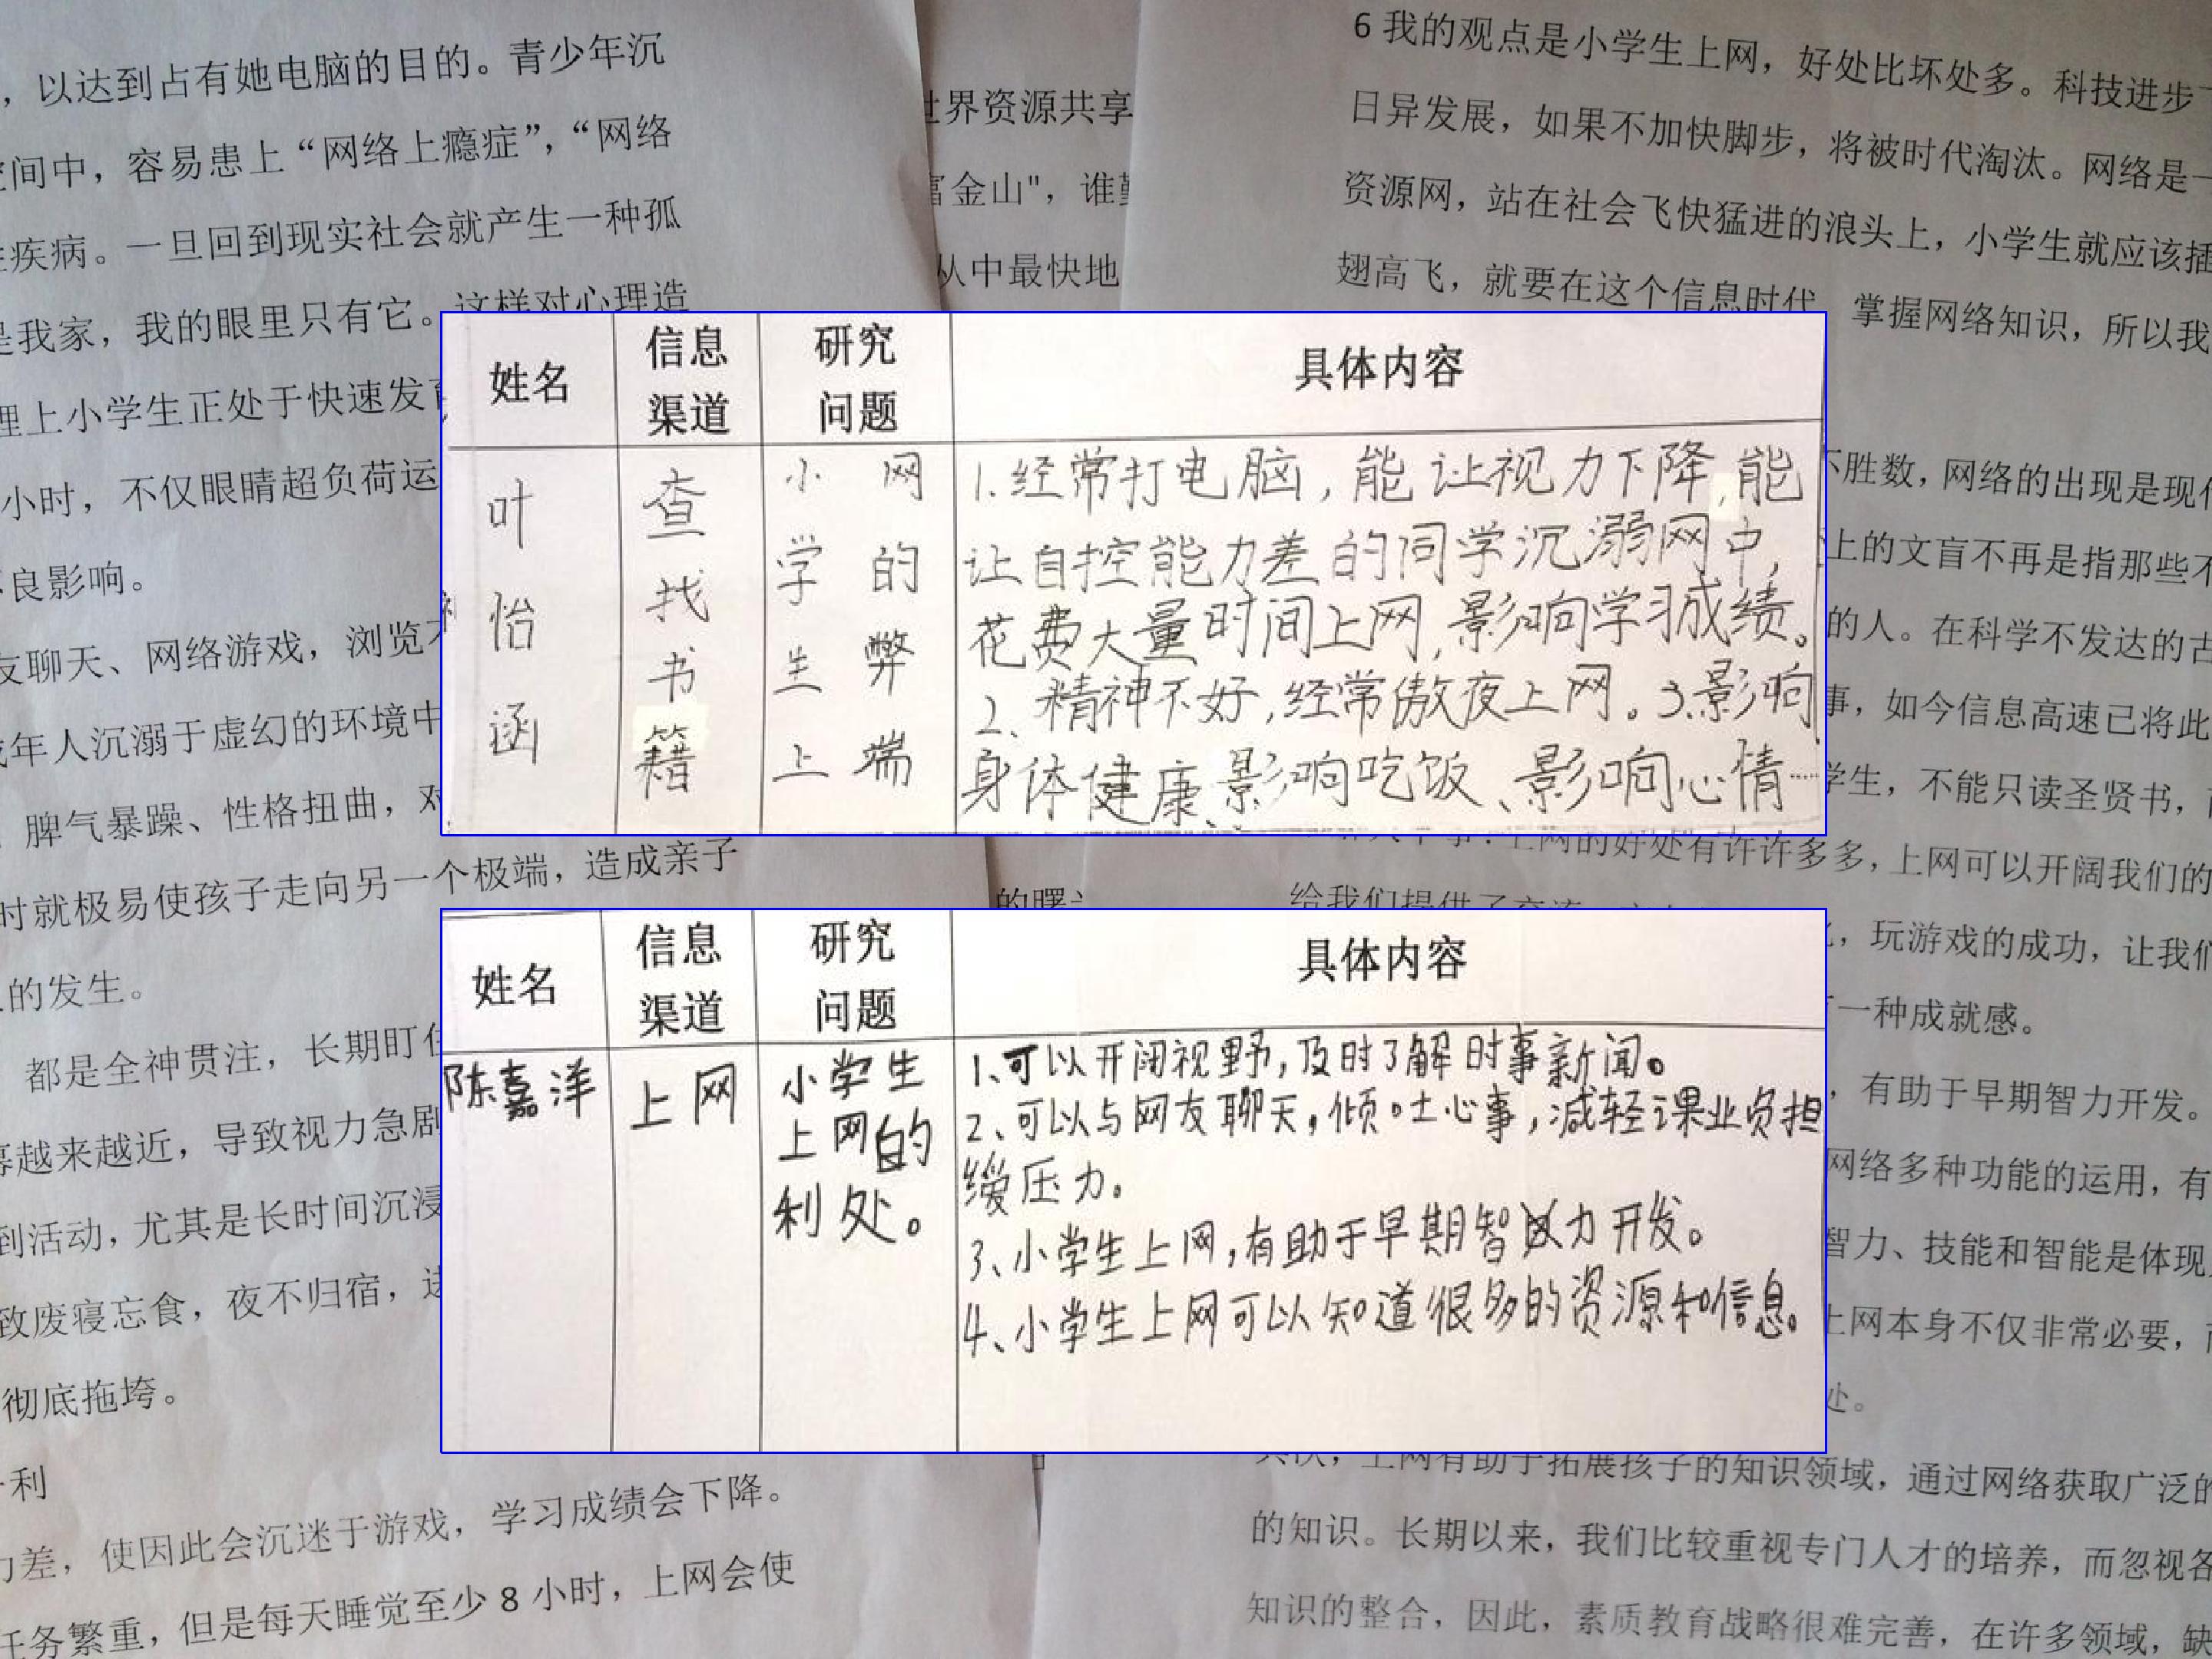 ，以达到占有她电脑的目的。青少年沉
间中，容易患上“网络上瘾症”，“网络
疾病。一旦回到现实社会就产生一种孤
是我家，我的眼里只有它。这样对心理造
理上小学生正处于快速发
小时，不仅眼睛超负荷运
良影响。
友聊天、网络游戏，浏览
年人沉溺于虚幻的环境中
脾气暴躁、性格扭曲，对
时就极易使孩子走向另一个极端，造成亲子
的发生。
都是全神贯注，长期盯住
越来越近，导致视力急剧
到活动，尤其是长时间沉浸
致废寝忘食，夜不归宿，
彻底拖垮。
利
力差，使因此会沉迷于游戏，学习成绩会下降。
任务繁重，但是每天睡觉至少 8 小时，上网会使
世界资源共享
富金山"，谁
从中最快地
的曙
姓名
信息
渠道
研究
问题
具体内容
叶怡函
查找书籍
小学生上
网的弊端
1.经常打电脑，能让视力下降，能
让自控能力差的同学沉溺网中，
花费大量时间上网，影响学习成绩。
2、精神不好，经常傲夜上网。3.影响
身体健康、影响吃饭、影响心情……
姓名
信息
渠道
研究
问题
具体内容
陈嘉洋
上网
小学生
上网的
利处。
1、可以开阔视野，及时了解时事新闻。
2、可以与网友聊天，倾吐心事，减轻课业负担
缓压力。
3、小学生上网，有助于早期智力开发。
4、小学生上网可以知道很多的资源和信息。
6 我的观点是小学生上网，好处比坏处多。科技进步
日异发展，如果不加快脚步，将被时代淘汰。网络是一
资源网，站在社会飞快猛进的浪头上，小学生就应该插
翅高飞，就要在这个信息时代，掌握网络知识，所以我
不胜数，网络的出现是现代
上的文盲不再是指那些不
的人。在科学不发达的古
事，如今信息高速已将此
学生，不能只读圣贤书，
上网的好处有许许多多，上网可以开阔我们的
给我们提供了交流
，玩游戏的成功，让我们
一种成就感。
，有助于早期智力开发。
网络多种功能的运用，有
智力、技能和智能是体现
上网本身不仅非常必要，
处。
其次，上网有助于拓展孩子的知识领域，通过网络获取广泛的
的知识。长期以来，我们比较重视专门人才的培养，而忽视各
知识的整合，因此，素质教育战略很难完善，在许多领域，缺